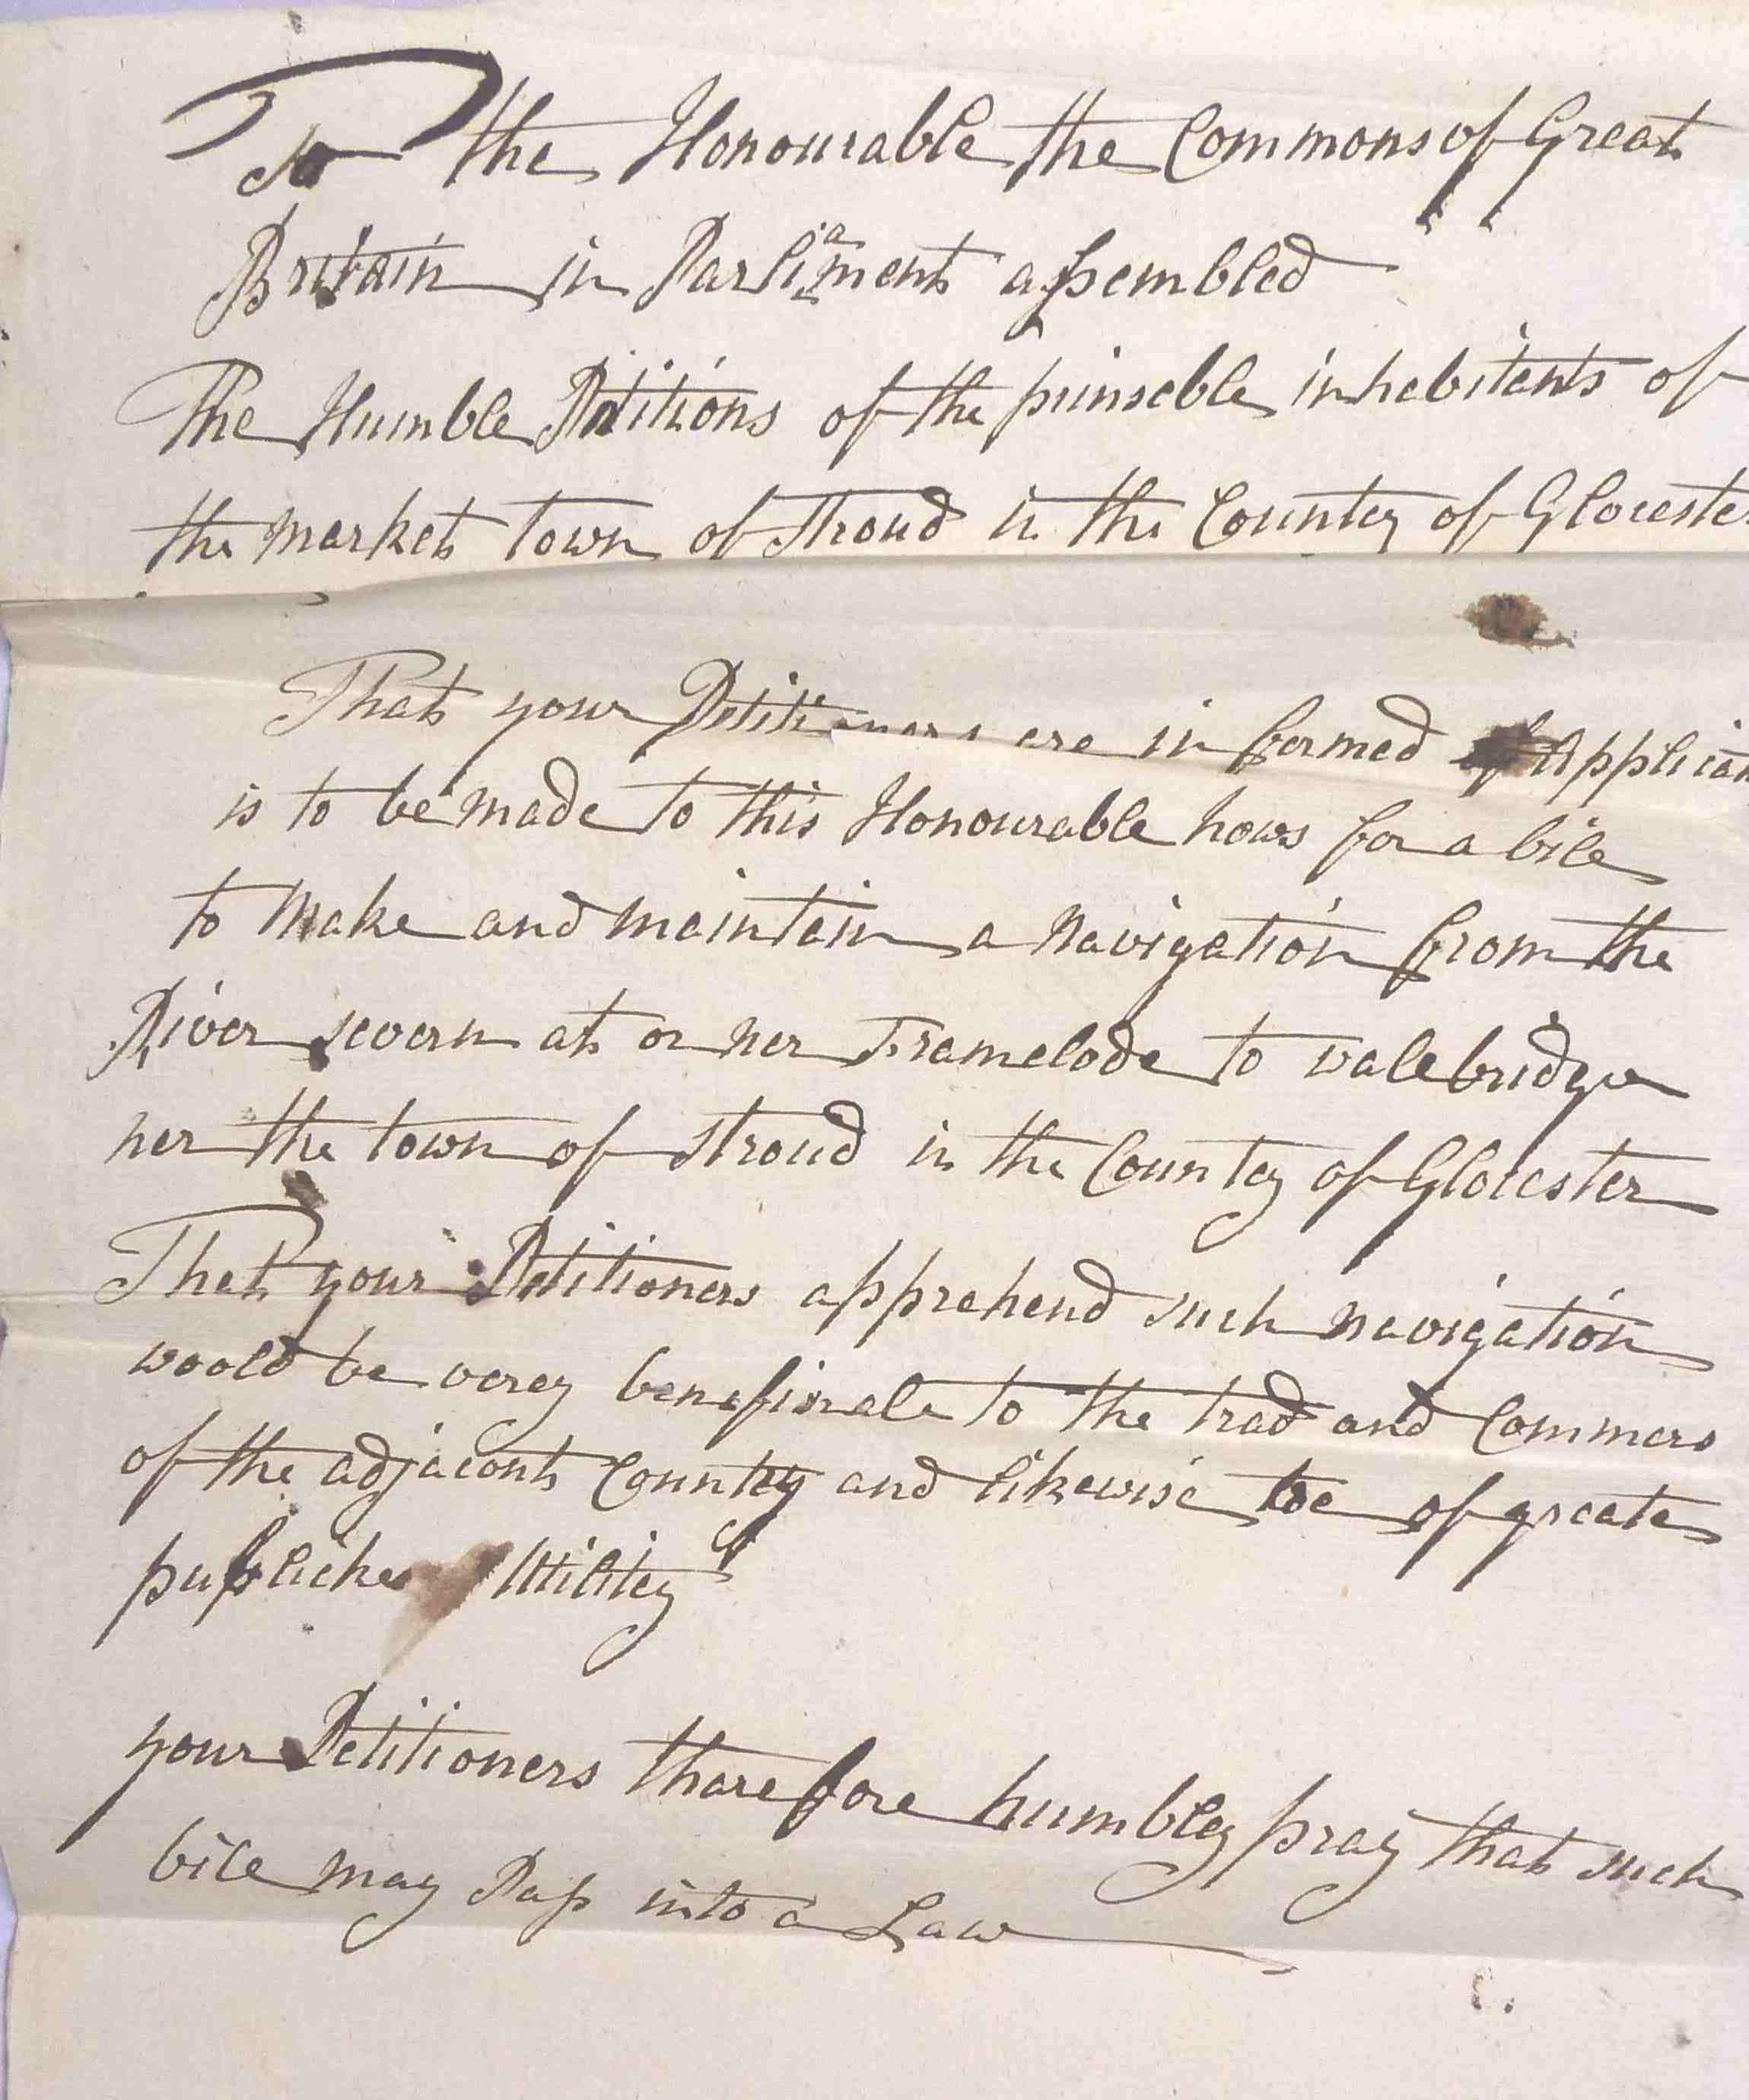 To the Honourable the Commons of Great
Britain in Parliament assembled
The Humble Petitions of the prinseble inhebitents of
the market town of Stroud in the Countey of Glocester
That your Petitioners are in formed of Applicat
is to be made to this Honourable hows for a bile
to make and maintain a navigation from the
River severn at or ner Framelode to walebridge
ner the town of stroud in the Countey of Glocester
That your Petitioners apprehend such navigation
woold be verey benefisale to the trad and Commers
of the adjacent Countey and likewise be of greate
publicke Utilitey
your Petitioners tharefore humbley pray that such
bile may Pass into a Law